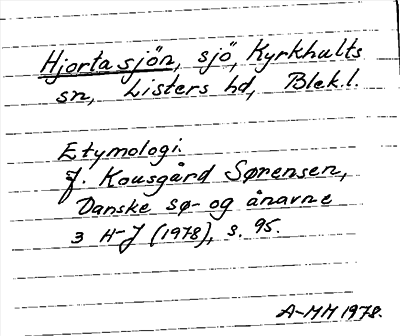 Hjortasjön, sjö, Kyrkhults
sn, Listers hd, Blek.l.
Etymologi.
Jf. Kousgård Sørensen,
Danske sø- og ånavne
3 H-J (1978), s. 95.
A-MM 1978.